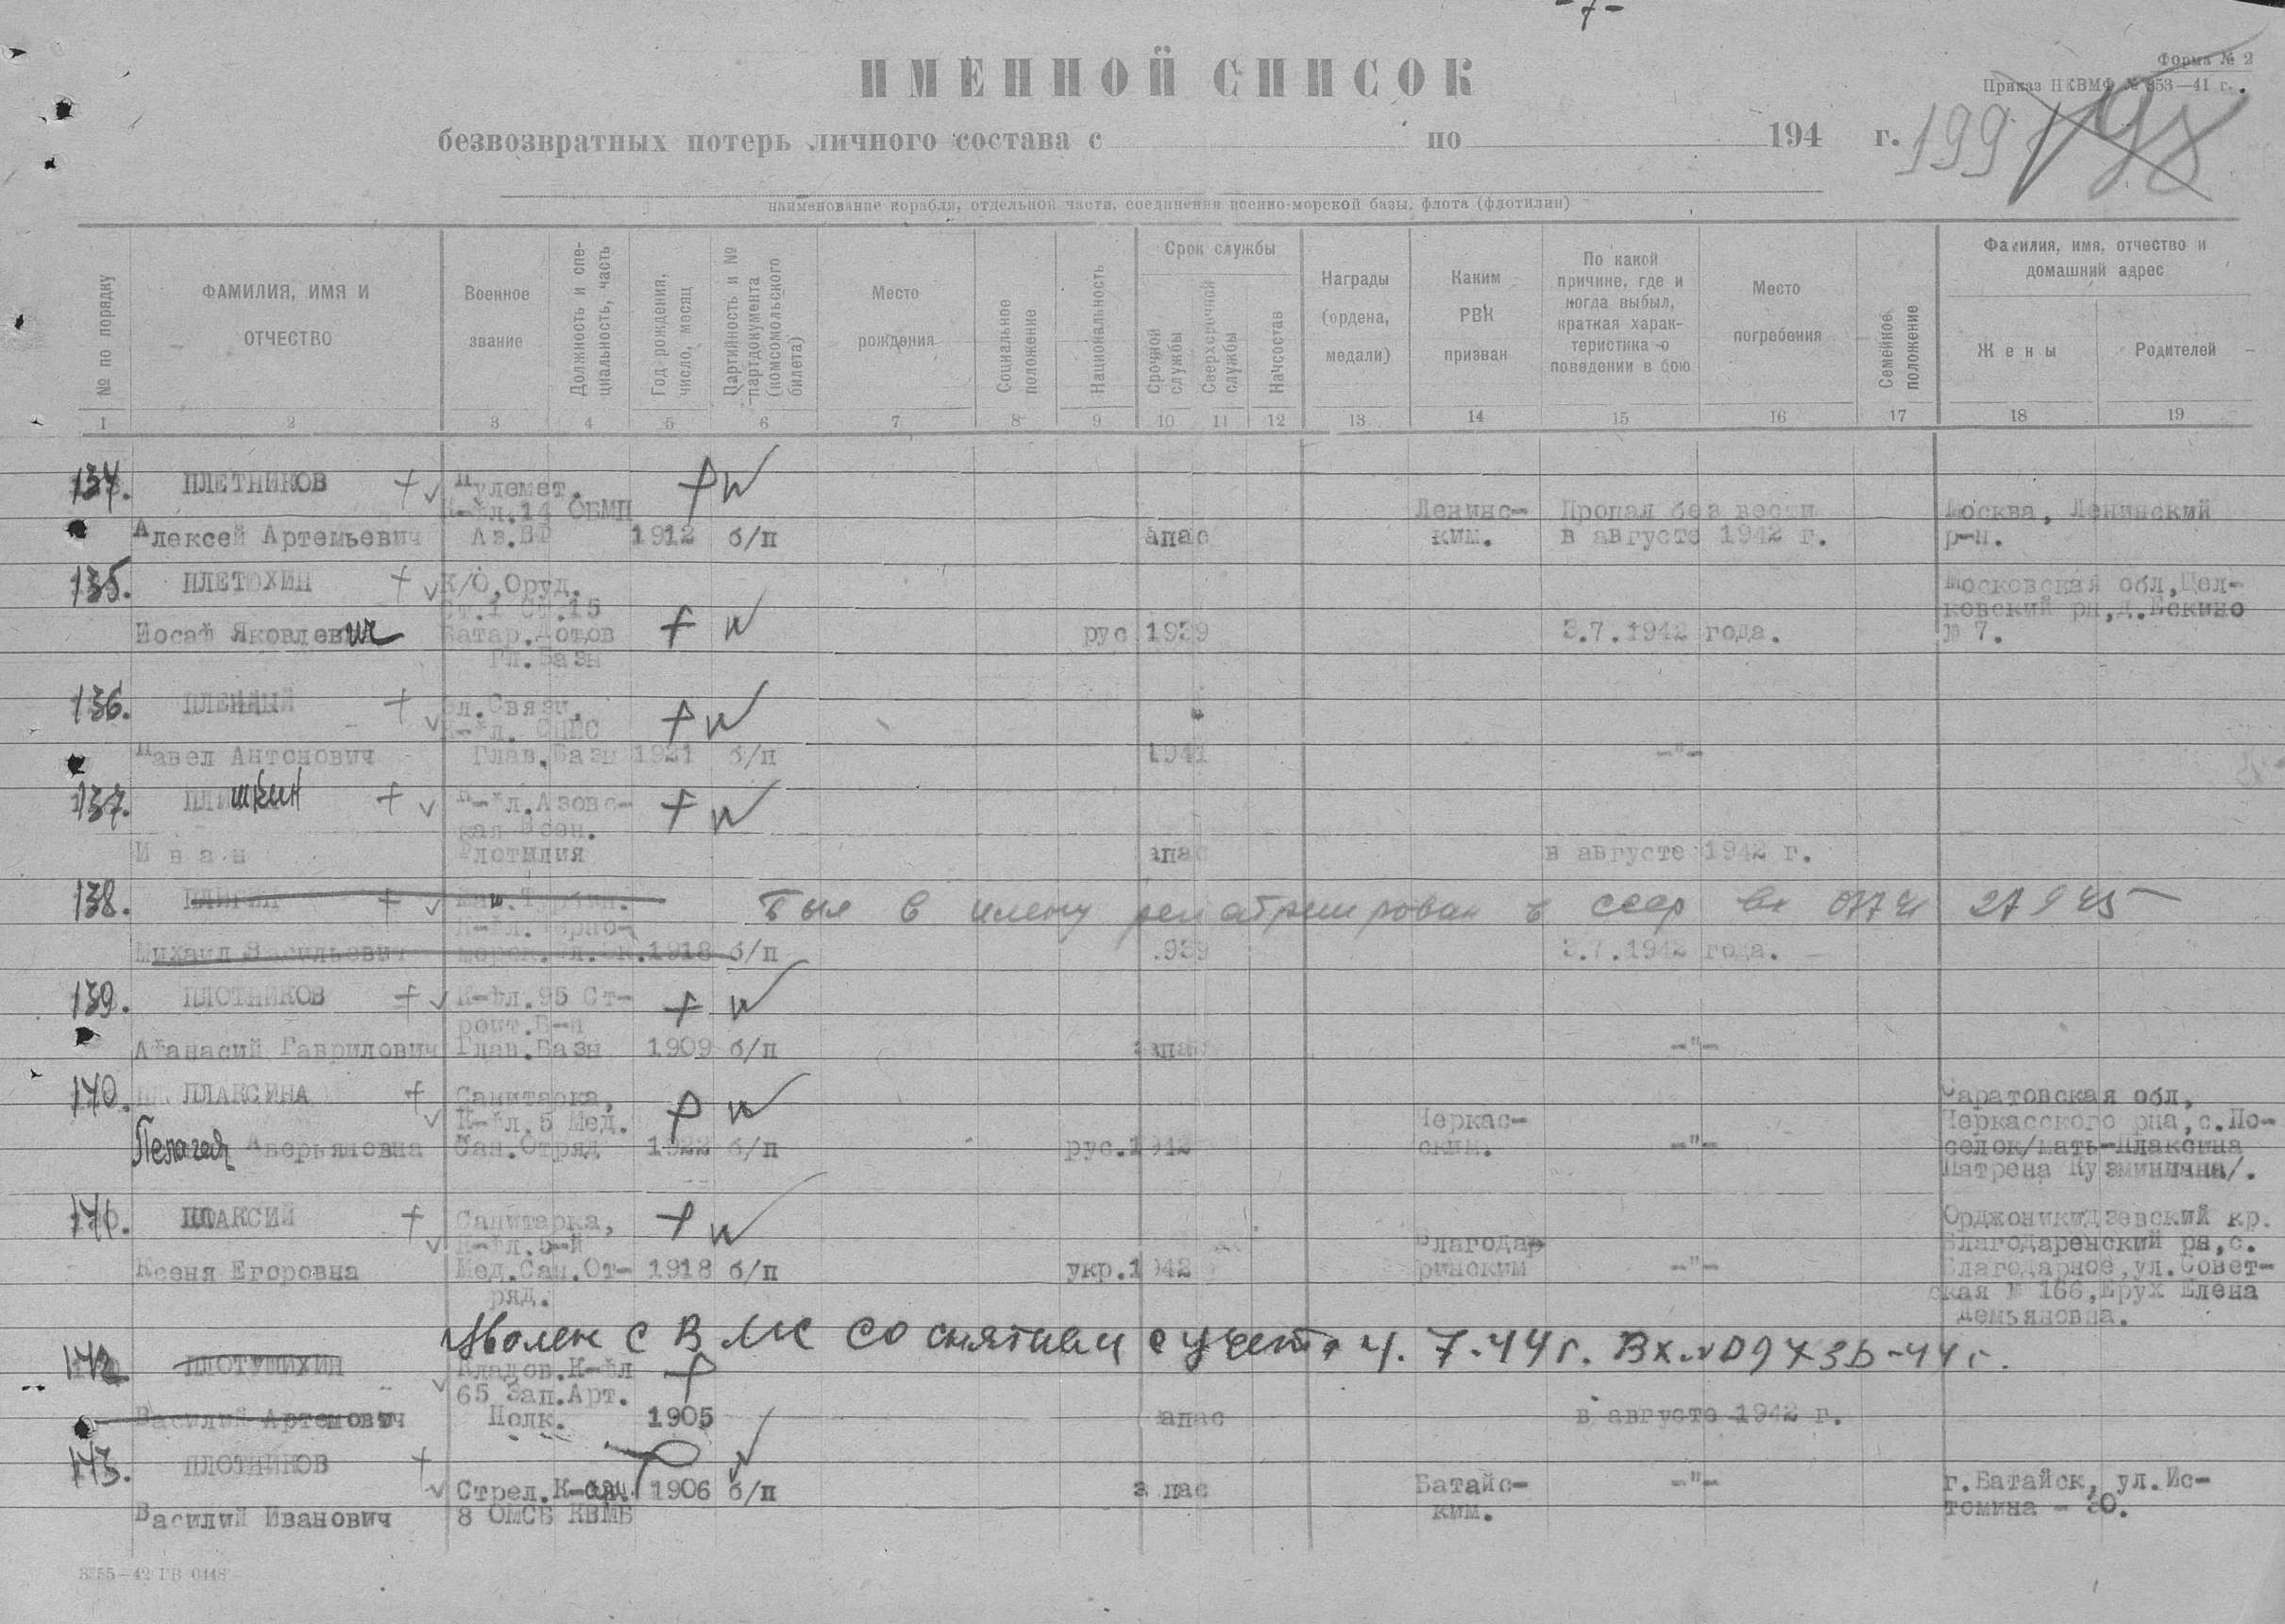 - 7 -
ИМЕННОЙ СПИСОК
Форма № 2
Приказ НКВМФ № 253—41 г.
безвозвратных потерь личного состава с по 194 г.
199 198
наименование корабля, отдельной части, соединения военно-морской базы, флота (флотилии)
№ по порядку
ФАМИЛИЯ, ИМЯ И ОТЧЕСТВО
Военное звание
Должность и спе-
циальность, часть
Год рождения,
число, месяц
Партийность и №
партдокумента
(комсомольского
билета)
Место рождения
Социальное положение
Национальность
Срок службы
Срочной службы
Сверхсрочной службы
Начсостав
Награды
(ордена,
медали)
Каким
РВК
призван
По какой
причине, где и
когда выбыл,
краткая харак-
теристика о
поведении в бою
Место
погребения
Семейное
положение
Фамилия, имя, отчество и
домашний адрес
Жены
Родителей
1 2 3 4 5 6 7 8 9 10 11 12 13 14 15 16 17 18 19
134. ПЛЕТНИКОВ Пулемет.
К-фл.14 ОБМП Ленинс- Пропал без вести Москва, Ленинский
Алексей Артемьевич Аз.ВФ 1912 б/п запас ким. в августе 1942 г. р-н.
135. ПЛЕТЮХИН К/О.Оруд. Московская обл,Щел-
Ст.1 Ст.15 ковский рн,д.Ескино
Иосаф Яковлевич Батар.Дотов рус 1939 3.7.1942 года. № 7.
Гл.Базы
136. ПЛЕННЫЙ Эл.Связи,
К-фл.
Павел Антонович Глав.Базы 1921 б/п 1941 -"-
137. ПЛИШКИН К-фл.Азовс-
кая Воен.
Иван Флотилия запас в августе 1942 г.
138. был в плену репатриирован в СССР вх
Михаил Васильевич 1918 б/п 1939 3.7.1942 года.
139. ПЛОТНИКОВ К-фл.95 Ст-
роит.Б-н
Афанасий Гаврилович Глав.Базы 1909 б/п запас -"-
140. ПЛАКСИНА Санитарка, Саратовская обл,
К-фл.5 Мед. Черкас- Черкасского рна,с.По-
Пелагея Аверьяновна Сан.Отряд 1922 б/п рус.1942 ским. -"- селок/мать-Плаксина
Матрена Кузминична/.
141. ПЛАКСИЙ Санитарка, Орджоникидзевский кр.
К-фл.5-й Благодар Благодаренский рн,с.
Ксеня Егоровна Мед.Сан.От- 1918 б/п укр.1942 ринским -"- Благодарное,ул.Совет-
ряд. ская № 166,Ерух Елена
Демьяновна.
Уволен с ВМС со снятием с учета 4.7.44г.
142 ПЛОТУМИХИН Кладов.К-фл
65 Зап.Арт.
Василий Артемович Полк. 1905 запас в августе 1942 г.
143. ПЛОТНИКОВ
Стрел. 1906 б/п запас Батайс- -"- г.Батайск, ул.Ис-
Василий Иванович 8 ОМСБ КВМБ ким. томина -